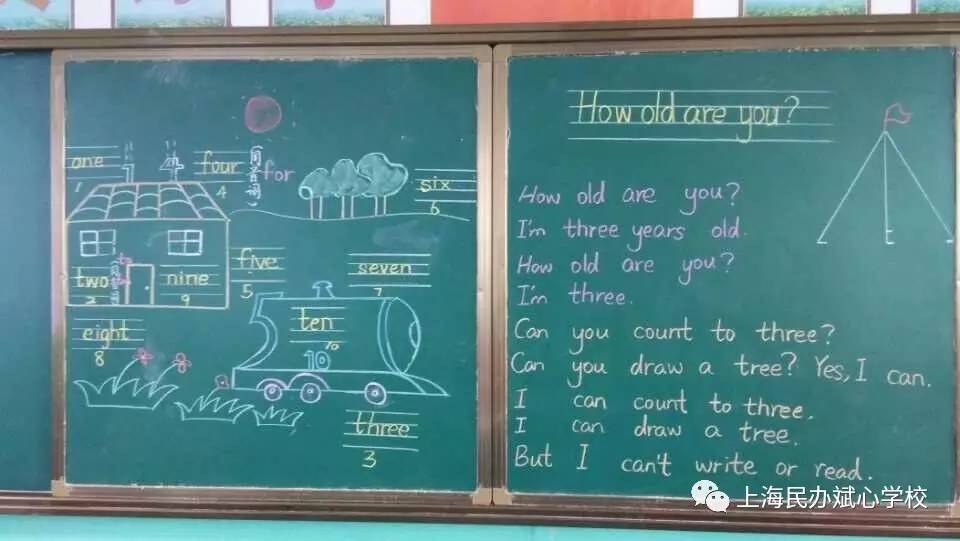 one
1
four
4
for
(同音词)
six
6
two
2
to
nine
9
five
5
seven
7
eight
8
ten
10
10
three
3
How old are you?
How old are you?
I'm three years old.
How old are you?
I'm three.
Can you count to three?
Can you draw a tree? Yes, I can.
I can count to three.
I can draw a tree.
But I can't write or read.
上海民办斌心学校